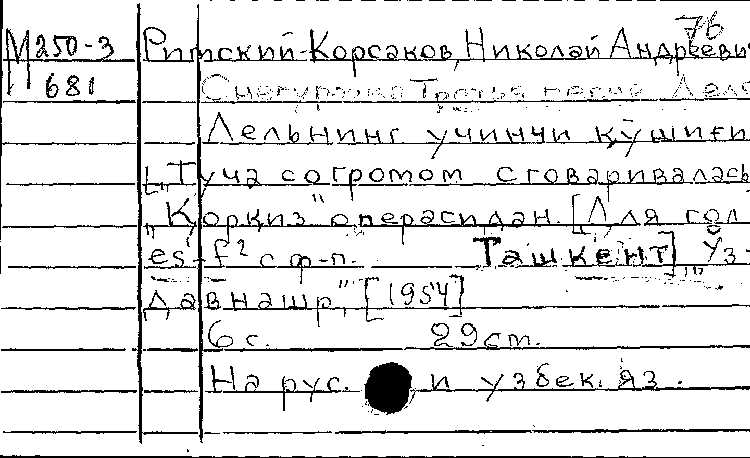 76
М 250-3 Римский-Корсаков, Николай Андреевич
681 Снегурочка Третья песня Леля
Лельнинг учинчи қўшиғи
[„Туча со громом сговаривалась
„Қорқиз" операсидан. [Для гол.
es'-f² с ф-п. Ташкент], „Ўз-
давнашр," [1954]
6 с. 29 см.
На рус. и узбек. яз.